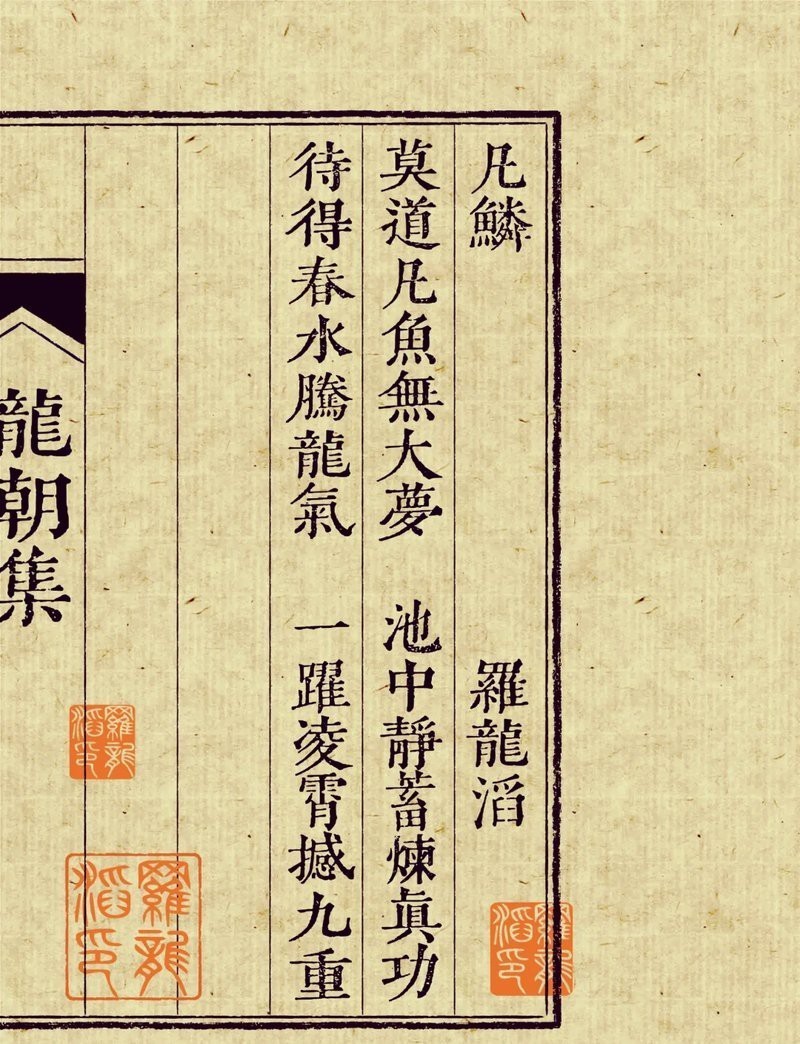 凡鱗 羅龍滔
莫道凡魚無大夢 池中靜蓄煉眞功
待得春水騰龍氣 一躍凌霄撼九重
龍朝集
羅龍滔印
羅龍滔印
羅龍滔印